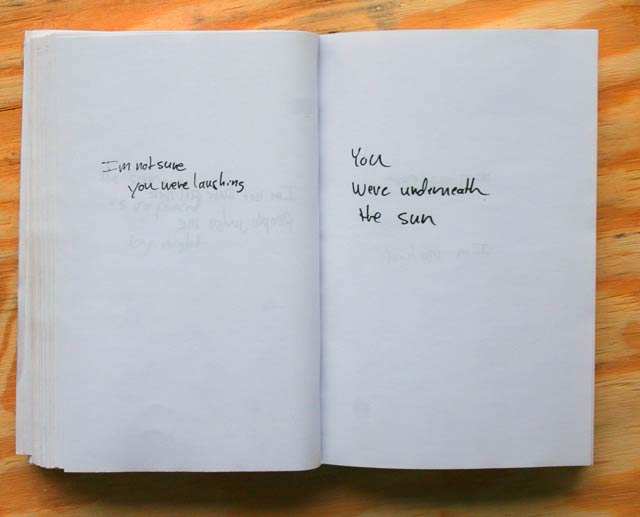 I'm not sure
you were laughing
You
were underneath
the sun